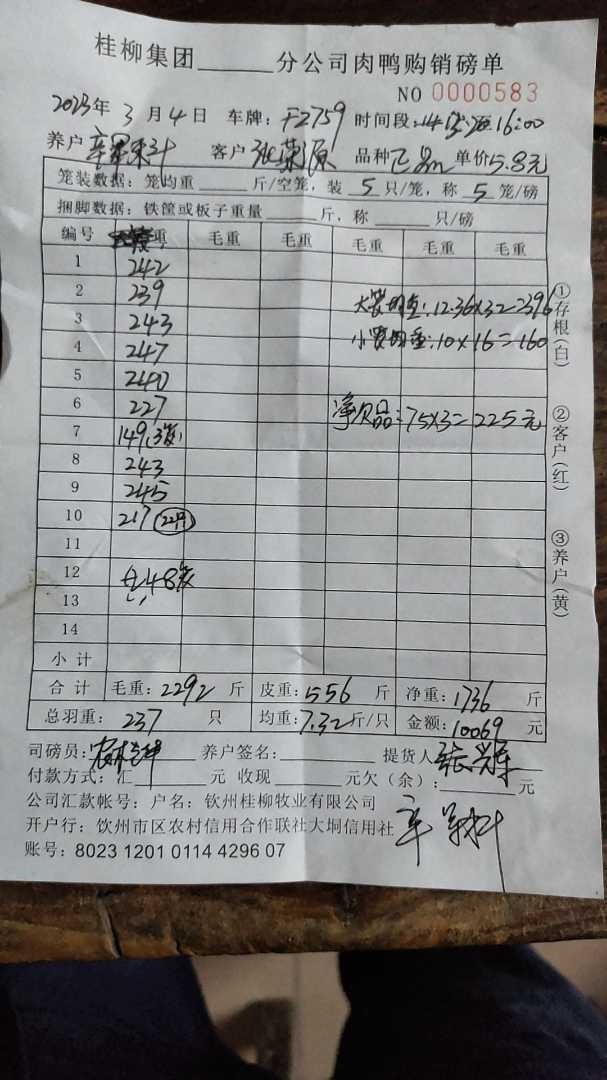 桂柳集团______分公司肉鸭购销磅单
NO 0000583
2023年 3 月 4 日 车牌: F2759 时间段: 16:00
养户 客户 张荣源 品种 单价 5.8元
笼装数据: 笼均重 ______ 斤/空笼, 装 5 只/笼, 称 5 笼/磅
捆脚数据: 铁筐或板子重量 ______ 斤, 称 ______ 只/磅
编号 重 毛重 毛重 毛重 毛重 毛重
1 242
2 239 :12.36×32=2396
3 243 :10×16=160
4 247
5 240
6 227 净次品:75×3=225元
7 149
8 243
9 245
10 217
11
12 共48
13
14
小 计
合 计 毛重: 2292 斤 皮重: 556 斤 净重: 1736 斤
总羽重: 237 只 均重: 7.32 斤/只 金额: 10069 元
司磅员: 养户签名: ______ 提货人
付款方式: 汇______元 收现______元欠(余):______元
公司汇款帐号: 户名: 钦州桂柳牧业有限公司
开户行: 钦州市区农村信用合作联社大垌信用社
账号: 8023 1201 0114 4296 07
①存根(白)
②客户(红)
③养户(黄)